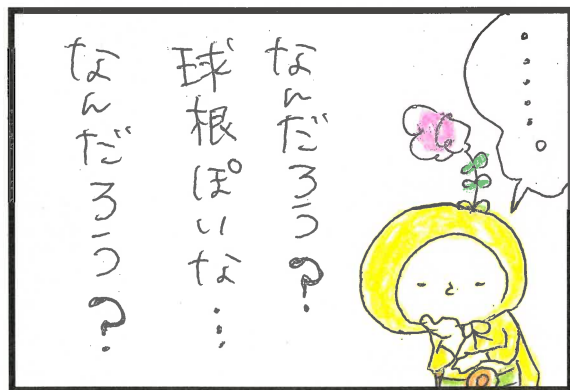 ・・・・・・。
なんだろう?
球根ぽいな…
なんだろう?